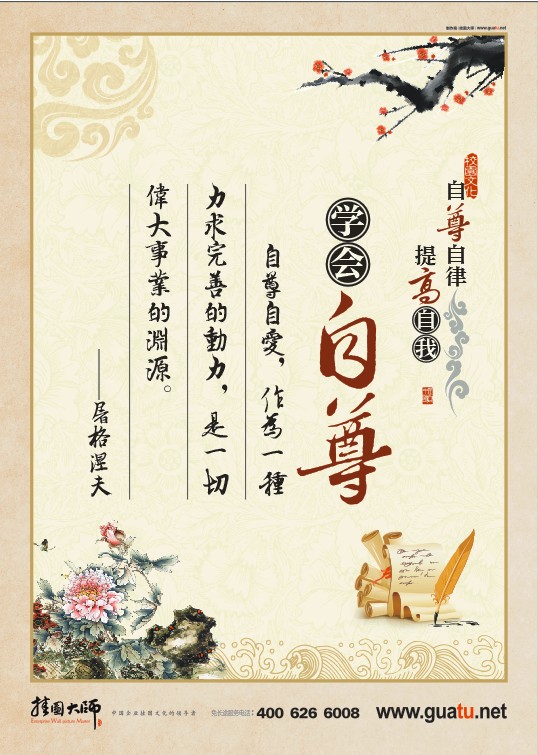 挂图大师 | www.guatu.net
校園文化
自尊自律
提高自我
学会自尊
自尊自愛，作為一種
力求完善的動力，是一切
偉大事業的淵源。
——屠格涅夫
挂图大师
中国企业挂图文化的领导者
免长途服务电话：400 626 6008
www.guatu.net